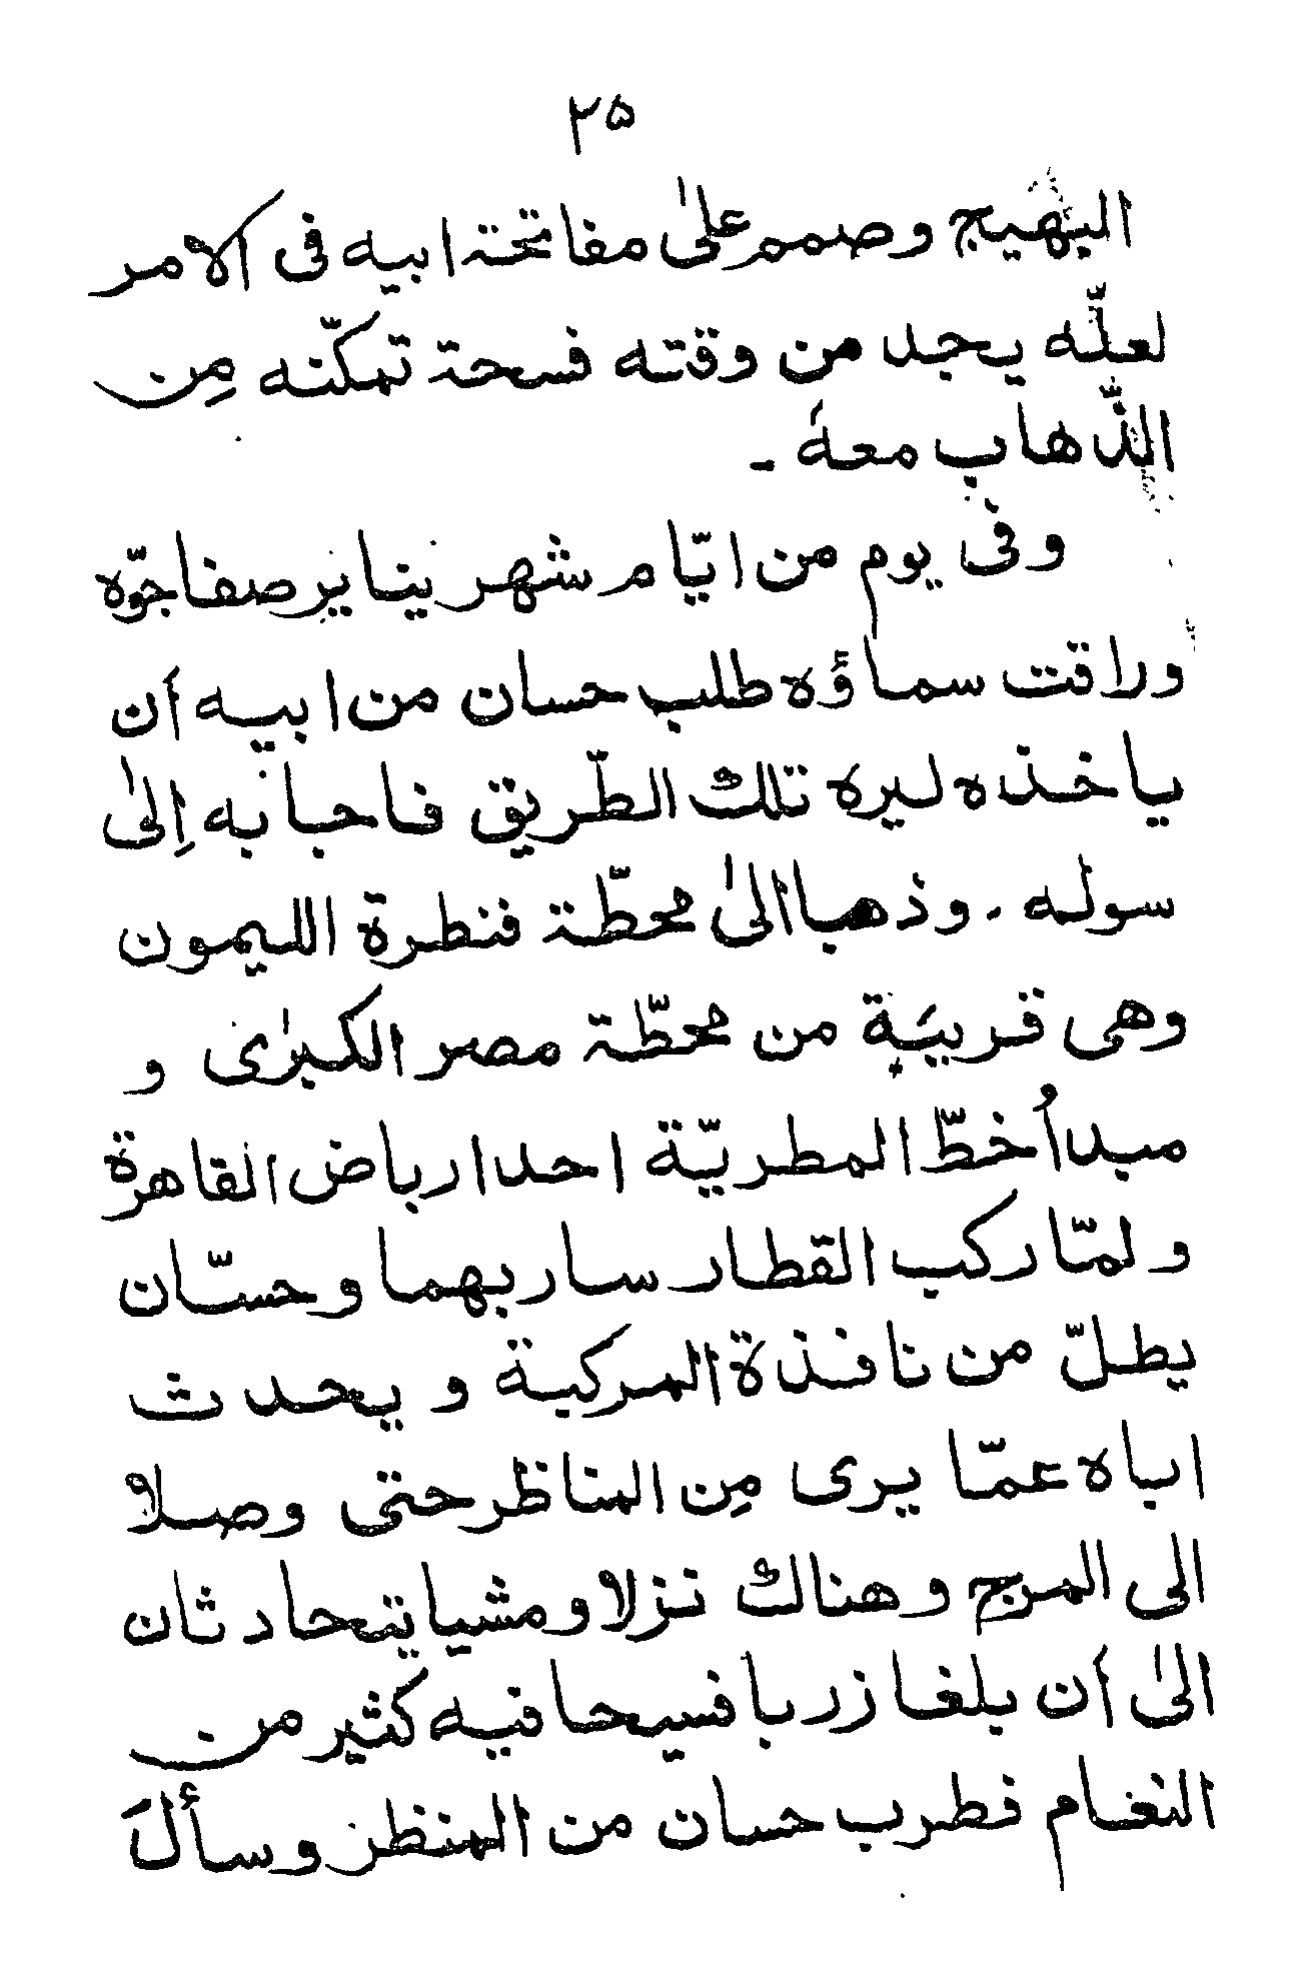 ٢۵
البهيج وصمم علىٰ مفاتحة ابيه فى الامر
لعلّه يجد من وقته فسحة تمكنّه مِن
الذّهاب معهٗ ـ
وفى يوم من ايّام شهر ينايرصفاجوّه
وراقت سماؤه طلب حسان من ابيه أن
ياخذه ليره تلك الطّريق فاجابه اِلىٰ
سوله ۔ وذهبا الىٰ محطّة فنطرة الليمون
وهى قريبَة من محطّة مصر الكبرٰى و
مبدأُخطّ المطريّة احدارباض القاهرة
ولمّا ركب القطار ساربهما وحسّان
يطلّ من نافذة المركبة و يحدث
اباه عمّا يرى مِن المناظر حتى وصلا
الى المرج وهناك نزلا ومشيا يتحادثان
الىٰ أن بلغا زربا فسيحا فيه كثير من
النغام فطرب حسان من المنظز وسألَ